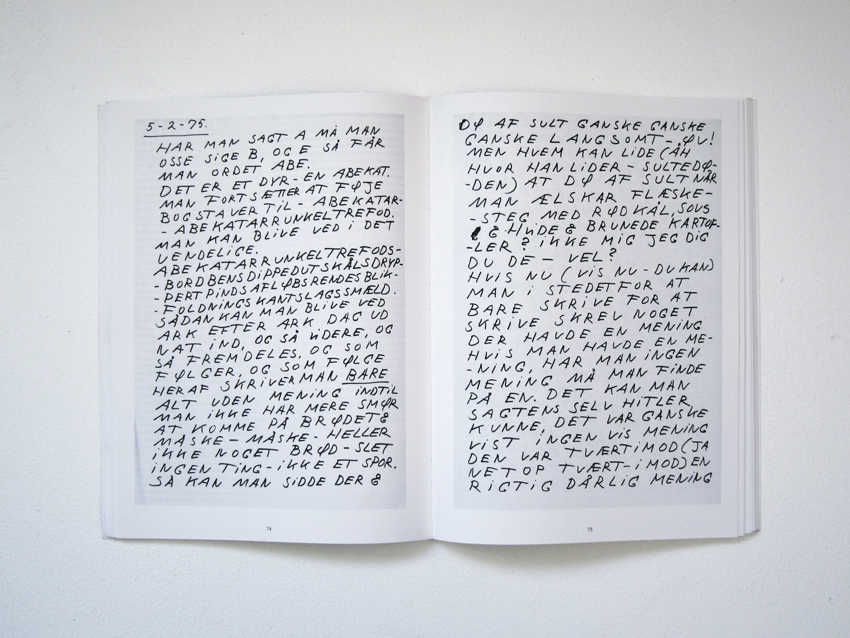 5-2-75.
HAR MAN SAGT A MÅ MAN
OSSE SIGE B, OG E SÅ FÅR
MAN ORDET ABE.
DET ER ET DYR - EN ABEKAT.
MAN FORTSÆTTER AT FØJE
BOGSTAVER TIL - ABEKATAR-
- ABEKATARRUNKELTREFOD.
MAN KAN BLIVE VED I DET
UENDELIGE.
ABEKATARRUNKELTREFODS-
-BORDBENSDIPPEDUTSKÅLSDRYP-
-PERTPINDSAFLØBSRENDESBLIK-
-FOLDNINGSKANTSLAGSSMÆLD.
SÅDAN KAN MAN BLIVE VED
ARK EFTER ARK DAG UD
NAT IND, OG SÅ VIDERE, OG
SÅ FREMDELES, OG SOM
FØLGER, OG SOM FØLGE
HERAF SKRIVER MAN BARE
ALT UDEN MENING INDTIL
MAN IKKE HAR MERE SMØR
AT KOMME PÅ BRØDET &
MÅSKE - MÅSKE - HELLER
IKKE NOGET BRØD - SLET
INGEN TING - IKKE ET SPOR.
SÅ KAN MAN SIDDE DER &
74
DØ AF SULT GANSKE GANSKE
GANSKE LANGSOMT - ØV!
MEN HVEM KAN LIDE (ÅH
HVOR HAN LIDER - SULTEDØ-
-DEN) AT DØ AF SULT NÅR
MAN ÆLSKAR FLÆSKE-
-STEG MED RØDKÅL, SOVS
& HVIDE & BRUNEDE KARTOF-
-LER? IKKE MIG JEG DIG
DU DE - VEL?
HVIS NU (VIS NU - DU KAN)
MAN I STEDET FOR AT
BARE SKRIVE FOR AT
SKRIVE SKREV NOGET
DER HAVDE EN MENING
HVIS MAN HAVDE EN ME-
-NING, HAR MAN INGEN
MENING MÅ MAN FINDE
PÅ EN. DET KAN MAN
SAGTENS SELV HITLER
KUNNE, DET VAR GANSKE
VIST INGEN VIS MENING
DEN VAR TVÆRTIMOD (JA
NETOP TVÆRT-IMOD) EN
RIGTIG DÅRLIG MENING
75